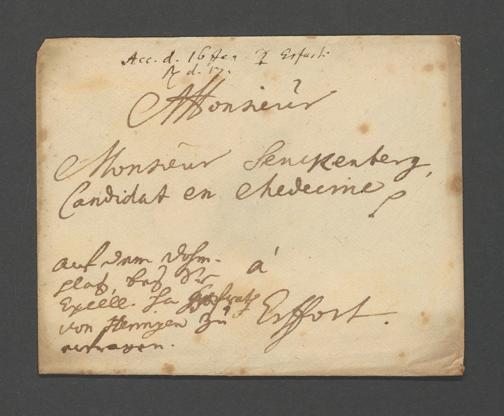 Acc. d. 16 ♀ Erfurti
R d. 17.
A Monsieur
Monsieur Senckenberg,
Candidat en Medecine
auf dem Dohm-
platz, bey Sr
Excell. H.
von Henngen zu
erfragen.
á
Erffort.